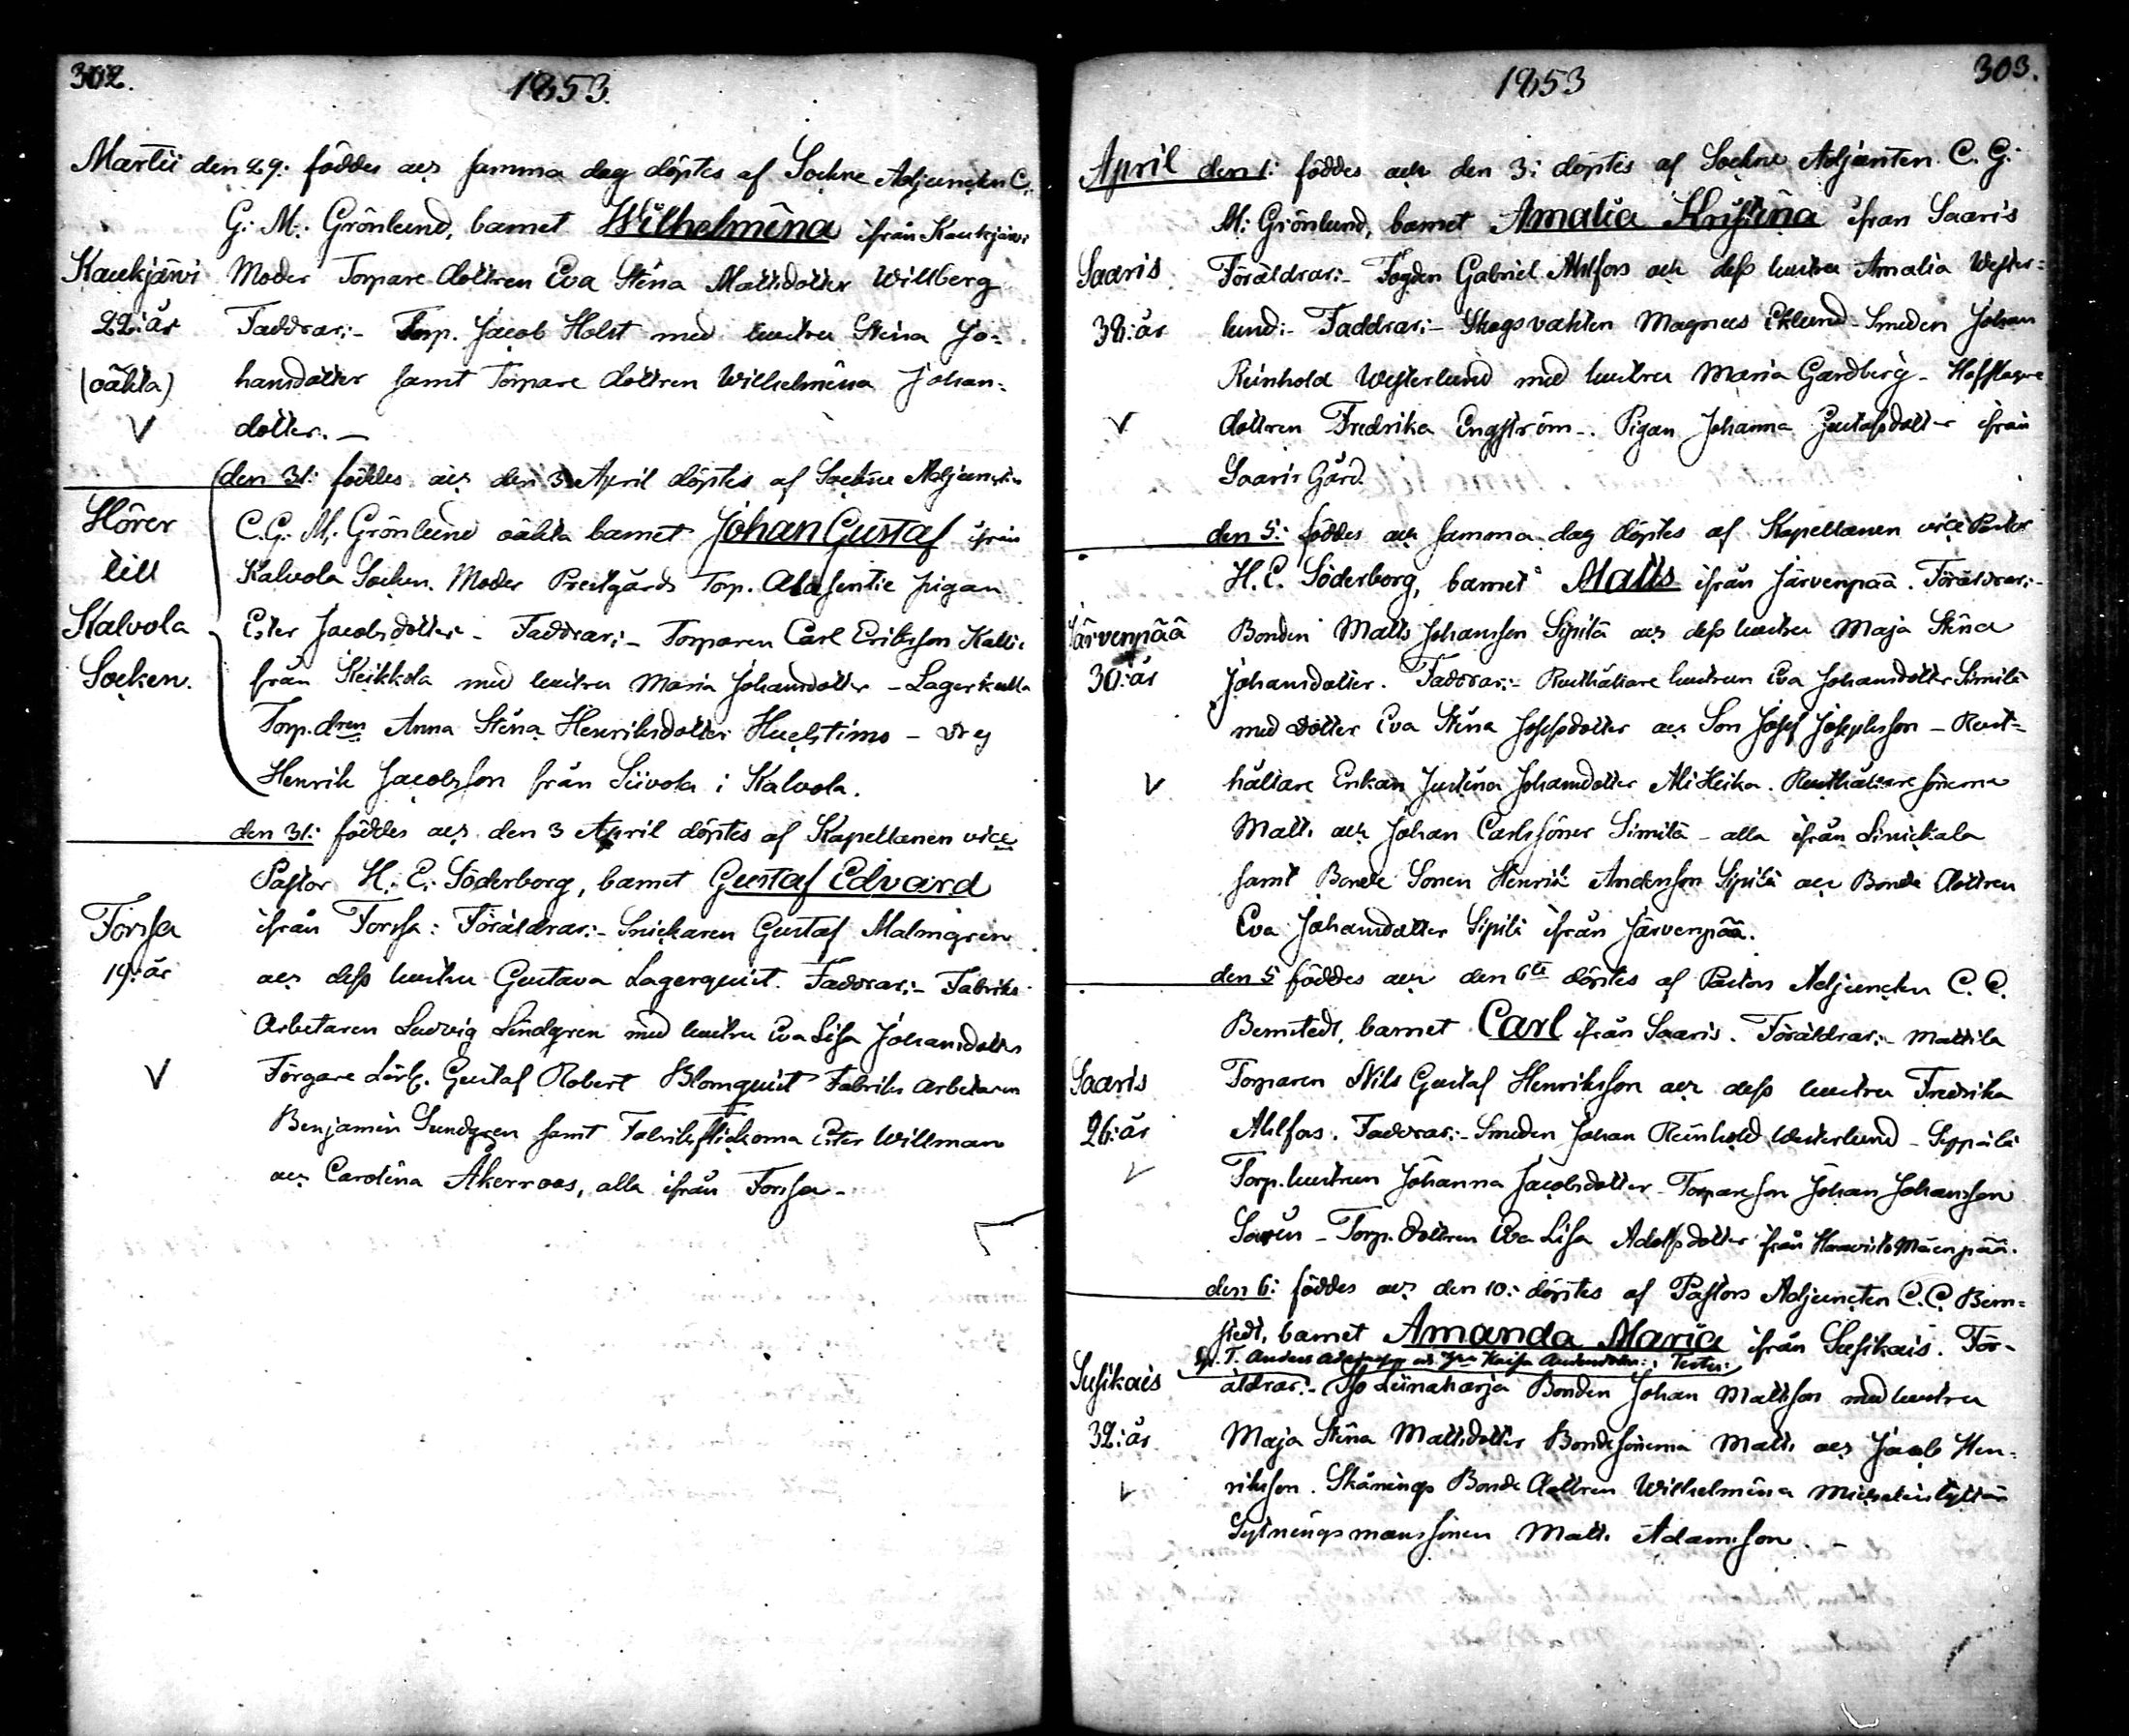 302.
1853.
Martii den 29: föddes och samma dag döptes af Sockne Adjuncten C.
G: M: Grönlund, barnet Wilhelmina ifrån Kaukjärvi
Kaukjärvi Moder Torpare dottren Eva Stina Mattsdotter Willberg
22: år Faddrar:- Torp. Jacob Holst med hustru Stina Jo-
(oäkta) hansdotter samt Torpare dottren Wilhelmina Johan-
V dotter. —
den 31: föddes och den 3 April döptes af Sockne Adjuncten
Hörer C. G: M: Grönlund oäkta barnet Johan Gustaf ifrån
till Kalvola Socken. Moder Prestgårds Torp. Alasentie pigan
Kalvola Ester Jacobsdotter - Faddrar:- Torparen Carl Eriksson Kalli
Socken. från Keikkola med hustru Maria Johansdotter - Lagerkulla
Torp. dren Anna Stina Henriksdotter - drg
Henrik Jacobsson från Siivola i Kalvola.
den 31: föddes och den 3 April döptes af Kapellanen vice
Pastor H. E: Söderborg, barnet Gustaf Edvard
Forssa ifrån Forssa: Föräldrar:- Snickaren Gustaf Malmgren
19: år och dess hustru Gustava Lagerquist. Faddrar:- Fabriks
Arbetaren Ludvig Lindgren med hustru Eva Lisa Johansdotter
V Färgare Lärl. Gustaf Robert Blomquist Fabriks arbetaren
Benjamin Sundgren samt Fabriksflickorna Ester Willman
och Carolina Åkerroos, alla ifrån Forssa -
303.
1853
April den 1: föddes och den 3: döptes af Sockne Adjuncten C. G:
M: Grönlund, barnet Amalia Kristina ifrån Saaris
Saaris Föräldrar:- Fogden Gabriel Ahlfors och dess hustru Amalia Wester-
38: år lund:- Faddrar:- Skogsvakten Magnus Eklund - Smeden Johan
Reinhold Westerlund med hustru Maria Gardberg -
V dottren Fredrika Engström -. Pigan Johanna Gustafsdotter ifrån
Saaris Gård.
den 5: föddes och samma dag döptes af Kapellanen vice Pastor
H. E. Söderborg, barnet Matts ifrån Järvenpää. Föräldrar:-
Järvenpää Bonden Matts Johansson Sipilä och dess hustru Maja Stina
30: år Johansdotter. Faddrar:- Rusthållare hustrun Eva Johansdotter Simila
med dotter Eva Stina Josefsdotter och Son Josef Josephsson - Rust-
V hållare Enkan Justina Johansdotter Ali Heika. Rusthållare sönerna
Matts och Johan Carlssöner Simila - alla ifrån Linickala
samt Bonde Sonen Henrik Andersson Sipilä och Bonde dottren
Eva Johansdotter Sipilä ifrån Järvenpää.
den 5 föddes och den 6te döptes af Pastors Adjuncten C. C.
Bernstedt, barnet Carl ifrån Saaris. Föräldrar:- Mattila
Saaris Torparen Nils Gustaf Henriksson och dess hustru Fredrika
26: år Ahlfors. Faddrar:- Smeden Johan Reinhold Westerlund - Seppälä
V Torp. hustrun Johanna Jacobsdotter - Torpareson Johan Johansson
Torp. dottren Eva Lisa Adolfsdotter från Mäenpää.
den 6: föddes och den 10: döptes af Pastors Adjuncten C. C. Bern-
stedt, barnet Amanda Maria ifrån Susikais. För-
T. Anders Kaisa Andersdotter:
Susikais äldrar:- Iso Liinaharja Bonden Johan Mattsson med hustru
32: år Maja Stina Mattsdotter Bondesönerna Matts och Jacob Hen-
V riksson. Skånings Bonde dottren Wilhelmina
Sytningsmanssonen Matts Adamsson. -